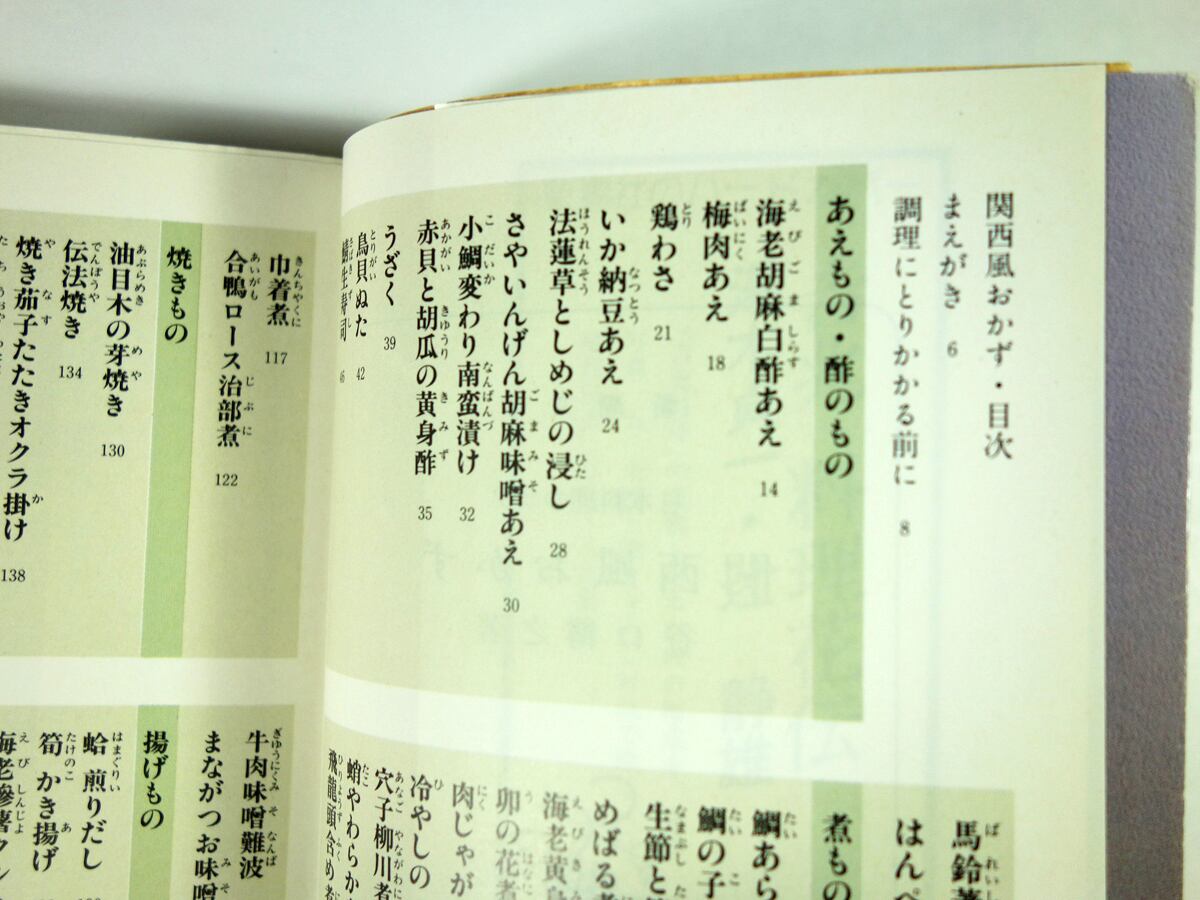 関西風おかず・目次
まえがき 6
調理にとりかかる前に 8
あえもの・酢のもの
海老胡麻白酢あえ 14
梅肉あえ 18
鶏わさ 21
いか納豆あえ 24
法蓮草としめじの浸し 28
さやいんげん胡麻味噌あえ 30
小鯛変わり南蛮漬け 32
赤貝と胡瓜の黄身酢 35
うざく 39
鳥貝ぬた 42
鯖生寿司 46
馬鈴薯
はんぺ
煮もの
鯛あら
鯛の子
生節と
めばる煮
海老黄身
卯の花煮
肉じゃが
冷やしの
穴子柳川煮
蛸やわらか
飛龍頭含め煮
巾着煮 117
合鴨ロース治部煮 122
焼きもの
油目木の芽焼き 130
伝法焼き 134
焼き茄子たたきオクラ掛け 138
牛肉味噌難波
まながつお味噌
揚げもの
蛤煎りだし
筍かき揚げ
海老糝薯